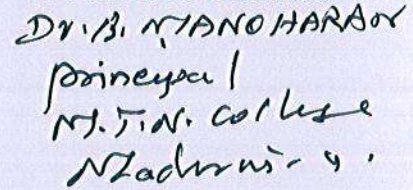 Dr. B. MANOHARAN
principal
M.T.N. College
Madurai - 4.